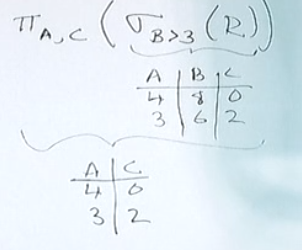 π A,C ( σ B>3 (R) )
A B C
4 8 0
3 6 2
A C
4 0
3 2